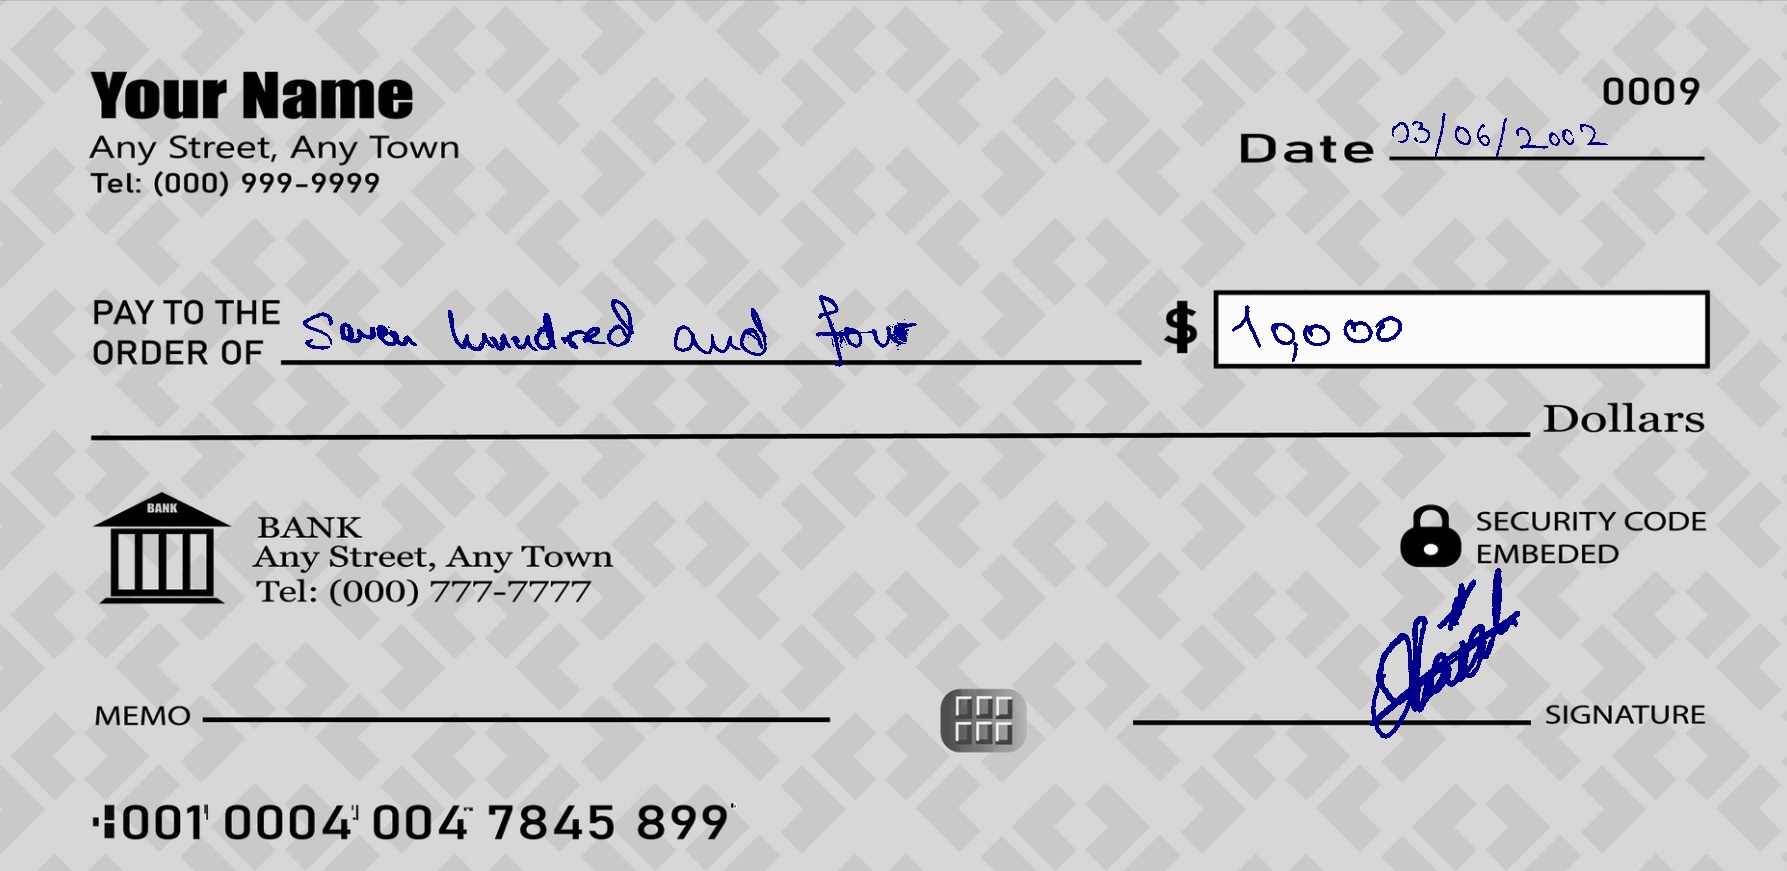 Your Name
Any Street, Any Town
Tel: (000) 999-9999
0009
Date 03/06/2002
PAY TO THE
ORDER OF Seven hundred and four $ 10,000
Dollars
BANK
BANK
Any Street, Any Town
Tel: (000) 777-7777
SECURITY CODE
EMBEDED
MEMO
SIGNATURE
001 0004 004 7845 899